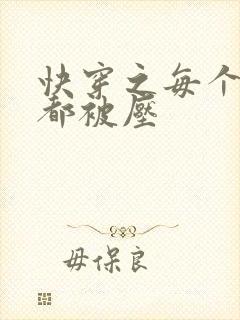 快穿之每个
都被壓
毋保良